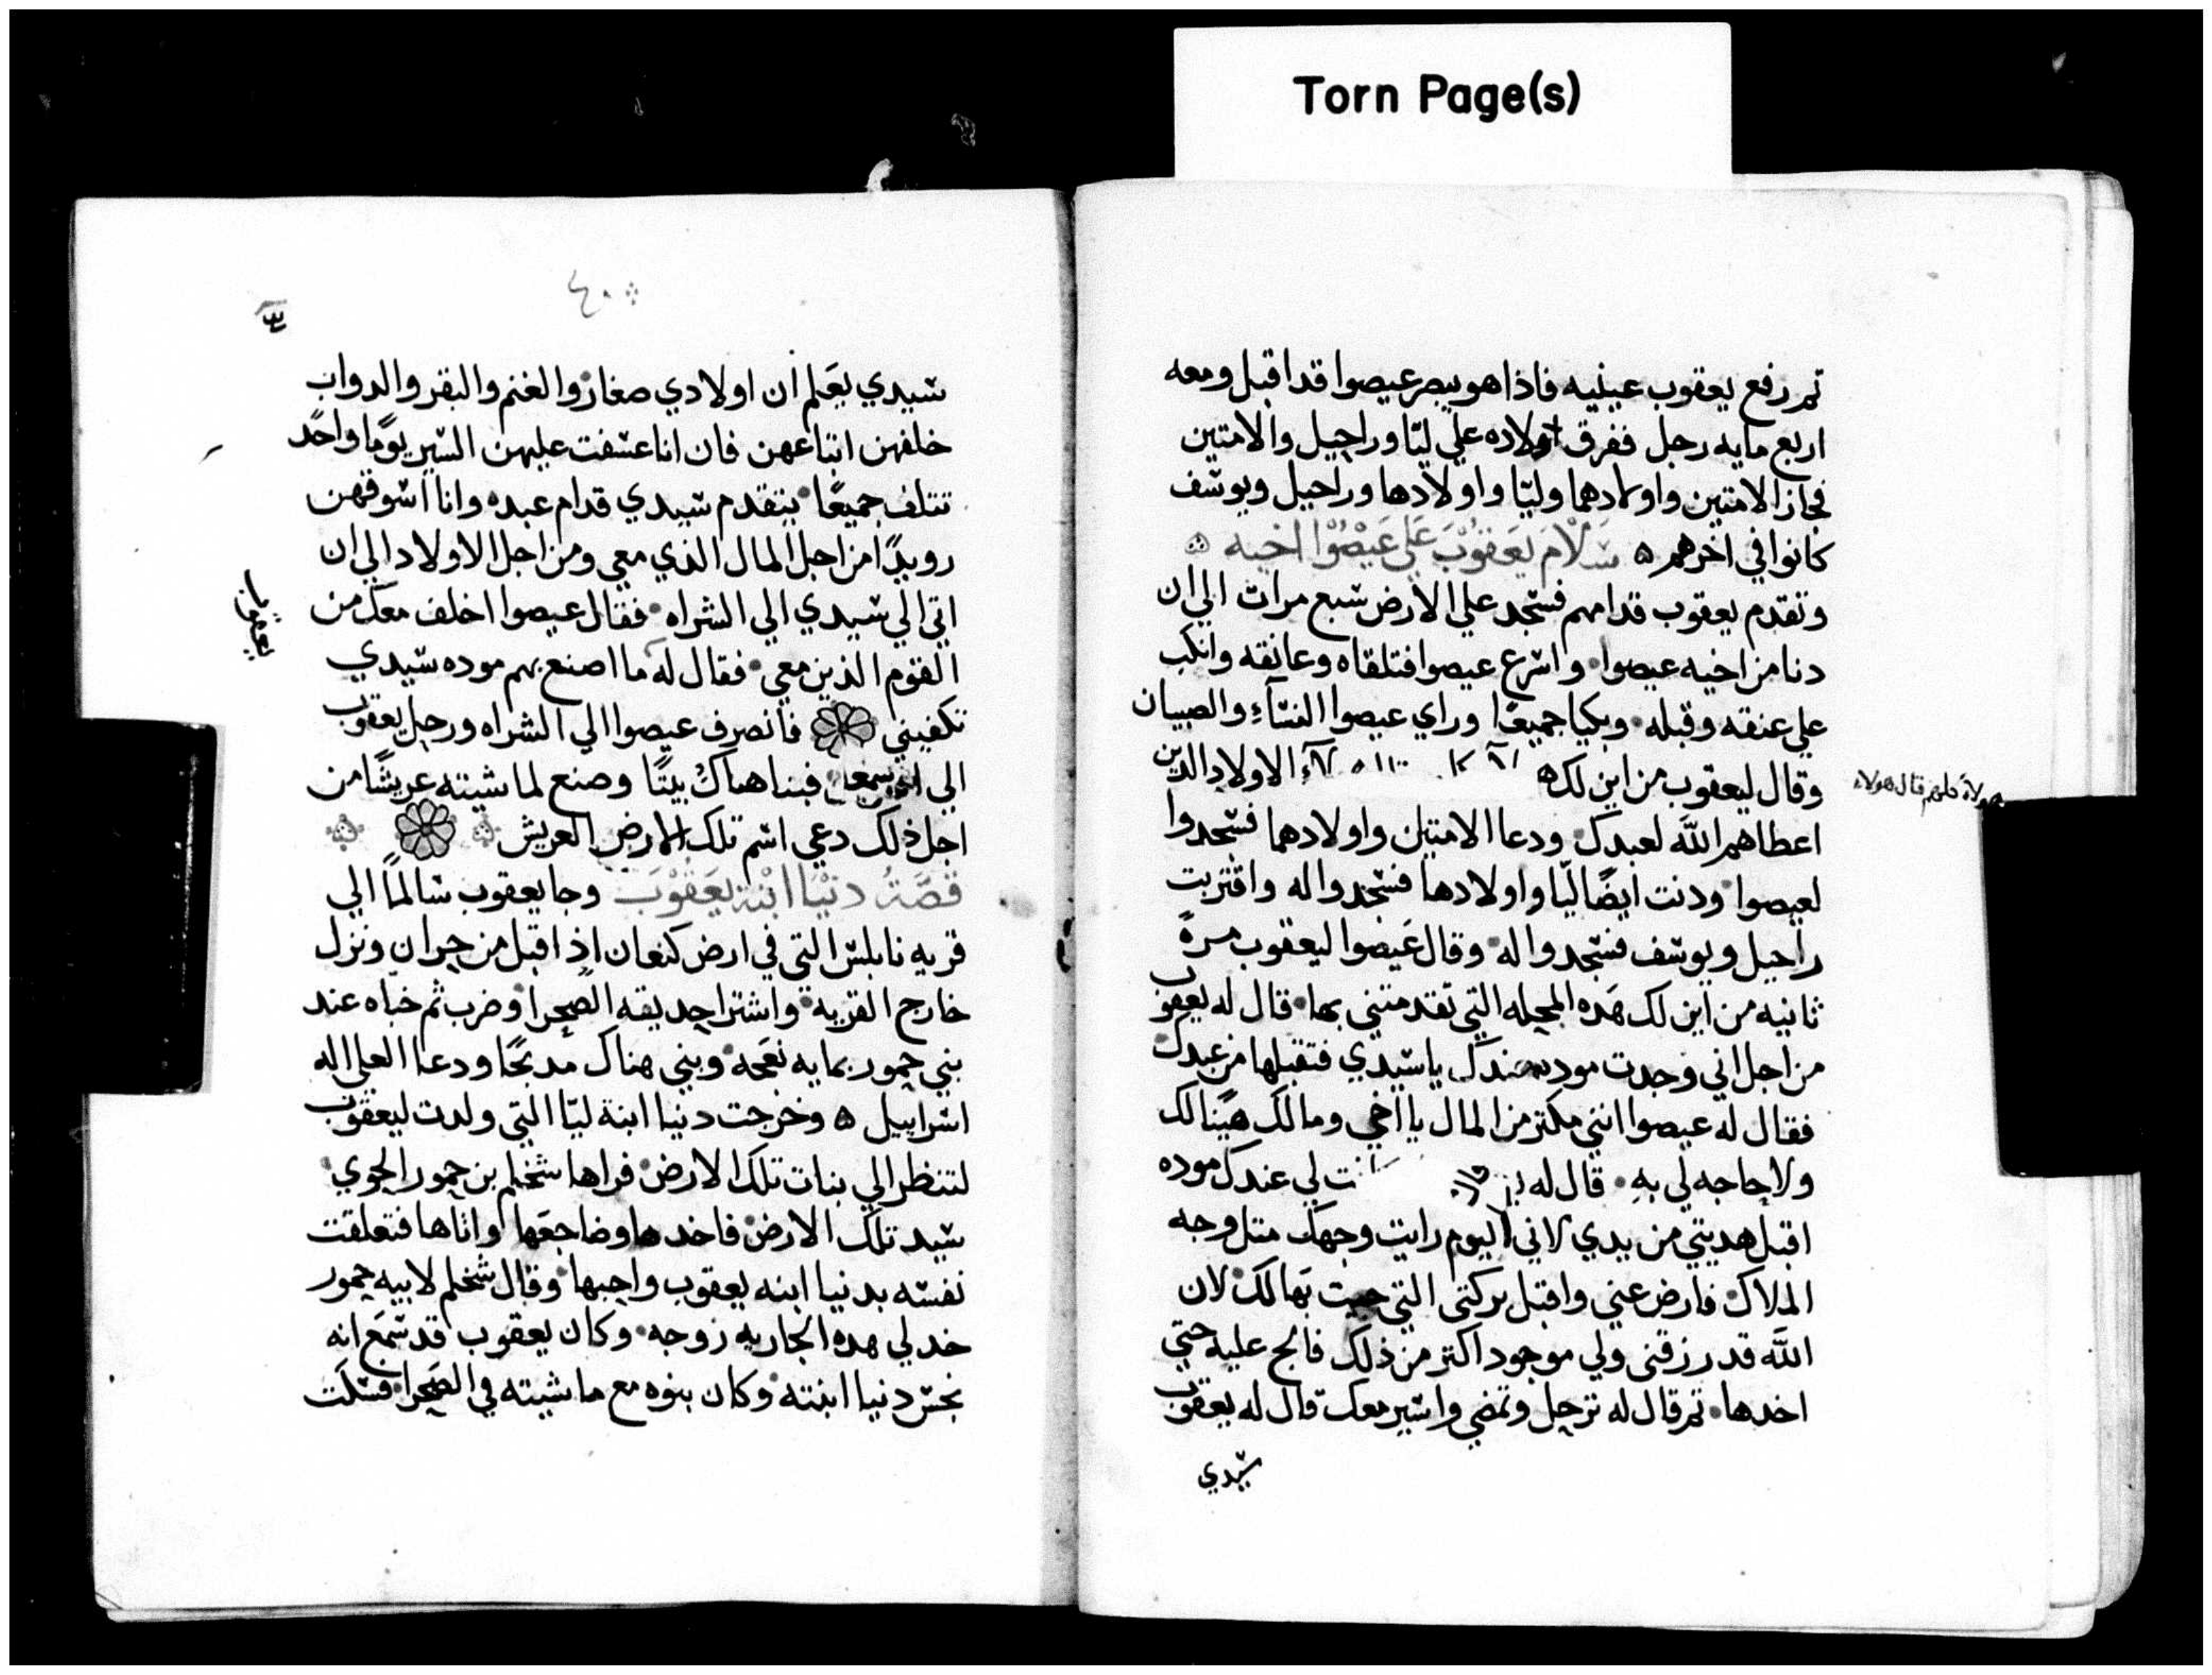 Torn Page(s)
ثم رفع يعقوب عينيه فاذا هو يبصر عيصوا قد اقبل ومعه
اربع مايه رجل ففرق اولاده علي ليّا وراحيل والامتين
فجاز الامتين واولادهما وليّا واولادها وراحيل ويوسف
كانوا في اخرهم ه سَلَامَ يَعَقُوْبَ عَلَي عَيْصُوْا اخيه
وتقدم يعقوب قدامهم فسجد علي الارض سبع مرات الي ان
دنا من اخيه عيصوا واسرع عيصوا فتلقاه وعانقه وانكب
علي عنقه وقبله وبكيا جميعًا وراي عيصوا النسآء والصبيان
وقال ليعقوب من اين لك الاولاد الدين
هولاء كلهم قال هولاء
اعطاهم الله لعبدك ودعا الامتين واولادهما فسجدوا
لعيصوا ودنت ايضًا ليّا واولادها فسجدوا له واقتربت
راحيل ويوسف فسجدوا له وقال عيصوا ليعقوب مرةً
ثانيه من اين لك هده المحله التي تقدمتني بها قال له يعقوب
من اجل اني وجدت موده عندك يا سيدي فتقبلها من عبدك
فقال له عيصوا انني مكتر من المال يا اخي ومالك هينًا لك
ولا حاجه لي بهِ قال له لي عندك موده
اقبل هديتي من يدي لاني اليوم رايت وجهك متل وجه
الملاك فارض عني واقبل بركتي التي جيت بها لك لان
الله قد رزقني ولي موجود اكتر من ذلك فالح عليه حتي
اخدها ثم قال له نرحل ونمضي واسير معك قال له يعقوب
سيدي
٤٠
سيدي يعَلم ان اولادي صغار والغنم والبقر والدواب
خلفهن اتباعهن فان انا عسفت عليهن السير يومًا واحدً
تتلف جميعًا يتقدم سيدي قدام عبده وانا اسوقهن
رويدًا من اجل المال الذي معي ومن اجل الاولاد الي ان
اتي الي سيدي الي الشراه فقال عيصوا اخلف معك من
القوم الذين معي فقال له ما اصنع بهم موده سيدي
يعقوب
تكفيني فانصرف عيصوا الي الشراه ورحل يعقوب
الي فبنا هناك بيتًا وصنع لماشيته عريشًا من
اجل ذلك دعي اسم تلك الارض العريش
قصَّةُ دنْيَا ابْنة يَعَقُوْبَ وجا يعقوب سالمًا الي
قريه نابلس التي في ارض كنعان اذ اقبل من حران ونزل
خارج القرية واشترا حديقه الصحرا وضرب ثم خباه عند
بني حمور بمايه نعجه وبني هناك مدبحًا ودعا العلي اله
اسراييل ه وخرجت دنيا ابنة ليّا التي ولدت ليعقوب
لتنظر الي بنات تلك الارض فراها شخيم بن حمور الحوي
سيد تلك الارض فاخدها وضاجعَها واتاها فتعلقت
نفسه بدنيا ابنه يعقوب واحبها وقال شخيم لابيه حمور
خد لي هده الجاريه زوجه وكان يعقوب قد سمَع انه
نجس دنيا ابنته وكان بنوه مع ماشيته في الصحرا فسكت